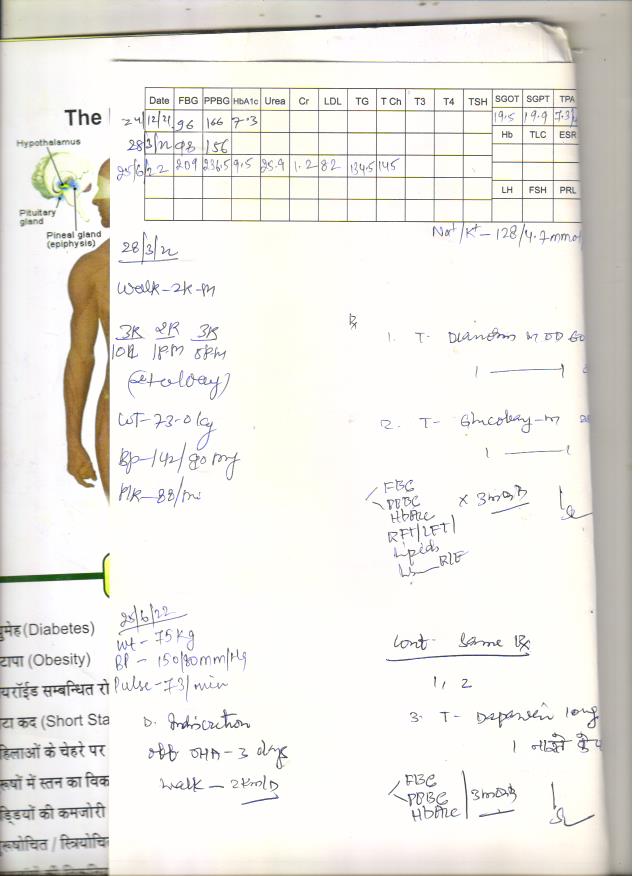 The
Hypothalamus
Pituitary
gland
Pineal gland
(epiphysis)
Date FBG PPBG HbA1c Urea Cr LDL TG T Ch T3 T4 TSH SGOT SGPT TPA
24/12/21 96 166 7.3 19.5 19.9 7.3
28/3/22 98 156 Hb TLC ESR
25/6/22 209 236.5 9.5 25.9 1.2 82 134.5 145
LH FSH PRL
Na+/K+ - 128/4.7 mmol
28/3/22
Walk - 2K-M
3R 2R 3R
1PM 8PM
WT - 73.0 kg
BP - 142/80 mmHg
PR - 88/mi
Rx
1. T- M OD 60
1 — 1
2. T- Glucobay-M
1 — 1
FBG
PPBG
HbA1c
RFT/LFT/
Lipids
R/E
x 3 months
25/6/22
Wt - 75 kg
BP - 150/80 mm/Hg
Pulse - 73/min
D. Indiscretion
off OHA - 3 days
Walk - 2km/D
Cont same Rx
1, 2
3. T-
1
FBG
PPBG
HbA1c
3 months
ुमेह (Diabetes)
टापा (Obesity)
यरॉईड सम्बन्धित रो
टा कद (Short Sta
हिलाओं के चेहरे पर
रूषों में स्तन का विक
ड्डियों की कमजोरी
रूषोचित / स्त्रियोचि